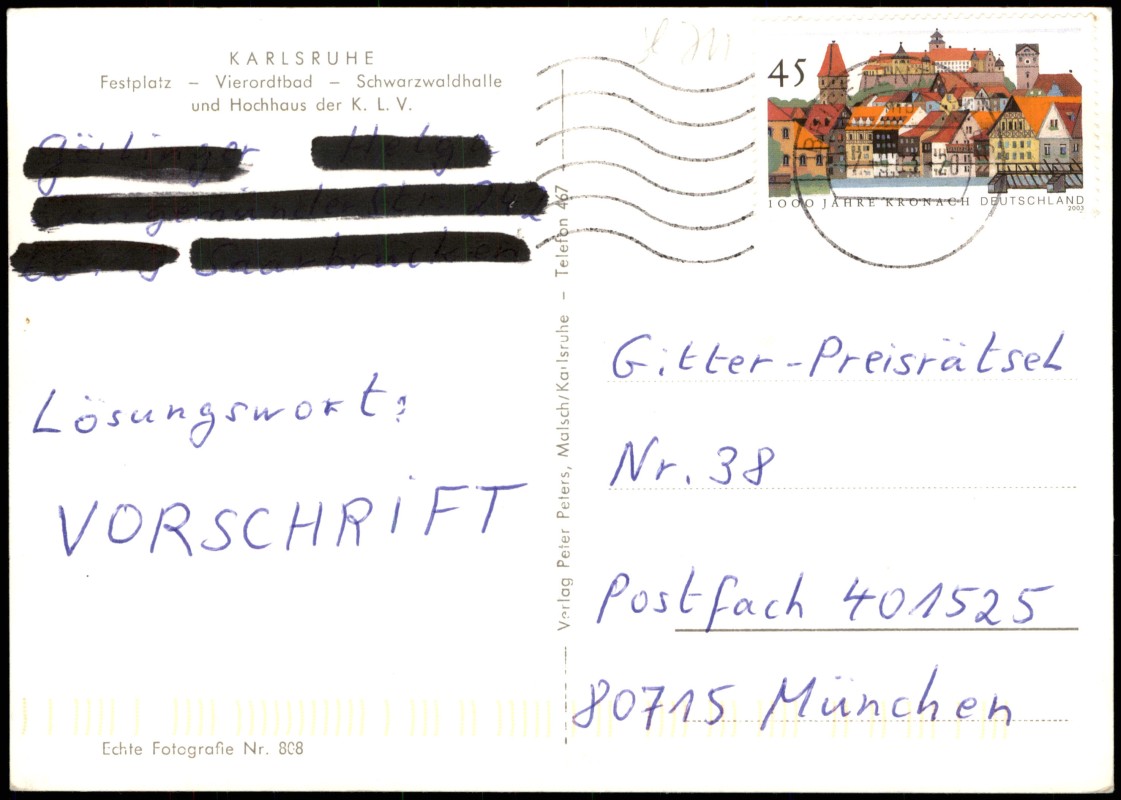 KARLSRUHE
Festplatz – Vierordtbad – Schwarzwaldhalle
und Hochhaus der K. L. V.
45
1000 JAHRE KRONACH DEUTSCHLAND
2003
Lösungswort:
VORSCHRIFT
Verlag Peter Peters, Malsch/Karlsruhe – Telefon 467
Gitter-Preisrätsel
Nr. 38
Postfach 401525
80715 München
Echte Fotografie Nr. 808